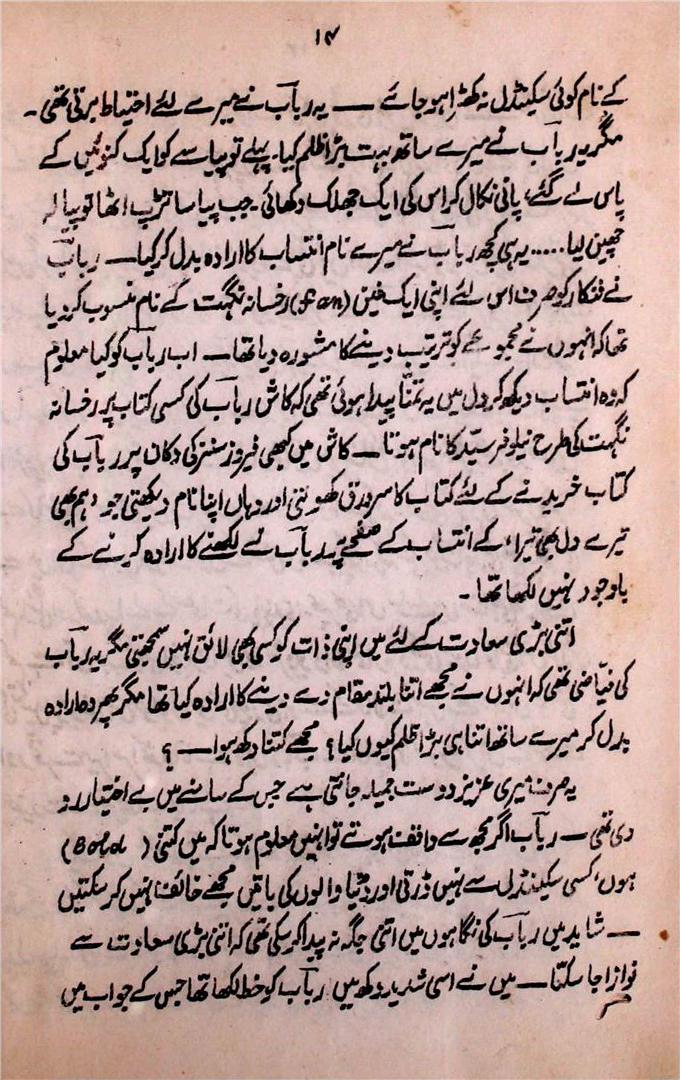 ۱۴
کے نام کوئی سکینڈل نہ کھڑا ہو جائے — یہ ربابؔ نے میرے لئے احتیاط برتی تھی۔
مگر یہ ربابؔ نے میرے ساتھ بہت بڑا ظلم کیا۔ پہلے تو پیاسے کو ایک کنوئیں کے
پاس لے گئے، پانی نکال کر اس کی ایک جھلک دکھائی۔ جب پیاسا تڑپ اٹھا تو پیالہ
چھین لیا ..... یہی کچھ ربابؔ نے میرے نام انتساب کا ارادہ بدل کر کیا — ربابؔ
نے فنکار کو صرف اس لئے اپنی ایک فین (fan) رخسانہ نگہت کے نام منسوب کر دیا
تھا کہ انہوں نے مجموعے کو ترتیب دینے کا مشورہ دیا تھا — اب ربابؔ کو کیا معلوم
کہ وہ انتساب دیکھ کر دل میں یہ تمنّا پیدا ہوئی تھی کہ کاش ربابؔ کی کسی کتاب پر رخسانہ
نگہت کی طرح نیلوفر سیّد کا نام ہوتا — کاش میں کبھی فیروز سنز کی دکان پر ربابؔ کی
کتاب خریدنے کے لئے کتاب کا سرورق کھولتی اور وہاں اپنا نام دیکھتی جو ’ہم بھی
تیرے دل بھی تیرا‘ کے انتساب کے صفحے پر ربابؔ نے لکھنے کا ارادہ کرنے کے
باوجود نہیں لکھا تھا۔
اتنی بڑی سعادت کے لئے میں اپنی ذات کو کسی بھی لائق نہیں سمجھتی مگر یہ ربابؔ
کی فیّاضی تھی کہ انہوں نے مجھے اتنا بلند مقام دے دینے کا ارادہ کیا تھا مگر پھر وہ ارادہ
بدل کر میرے ساتھ اتنا ہی بڑا ظلم کیوں کیا؟ مجھے کتنا دکھ ہوا — ؟
یہ صرف میری عزیز دوست جمیلہ جانتی ہے جس کے سامنے میں بے اختیار رو
دی تھی — ربابؔ اگر مجھ سے واقف ہوتے تو انہیں معلوم ہوتا کہ میں کتنی (Bold)
ہوں، کسی سکینڈل سے نہیں ڈرتی اور دنیا والوں کی باتیں مجھے خائف نہیں کر سکتیں
— شاید میں ربابؔ کی نگاہوں میں اتنی جگہ نہ پیدا کر سکی تھی کہ اتنی بڑی سعادت سے
نوازا جا سکتا — میں نے اسی شدید دکھ میں ربابؔ کو خط لکھا تھا جس کے جواب میں